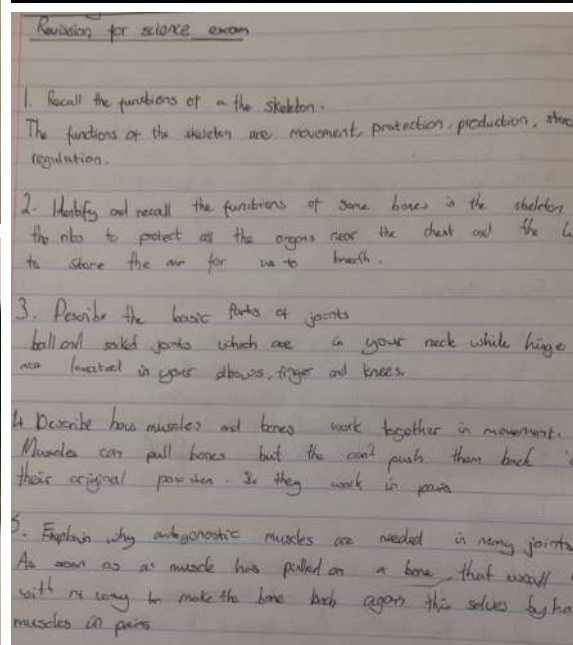 Revision for science exam
1. Recall the functions of a the skeleton.
The functions of the skeleton are movement, protection, production,
regulation.
2. Identify and recall the functions of some bones in the skeleton
the ribs to protect all the organs near the chest and the
to store the air for us to breath.
3. Describe the basic parts of joints
ball and socket joints which are in your neck while hinge
are located in your elbows, finger and knees.
4. Describe how muscles and bones work together in movement.
Muscles can pull bones but the can't push them back
their original position. So they work in pairs
5. Explain why antagonostic muscles are needed in many joints
As soon as a muscle has pulled on a bone, that
with no way to make the bone back again this solves by
muscles in pairs